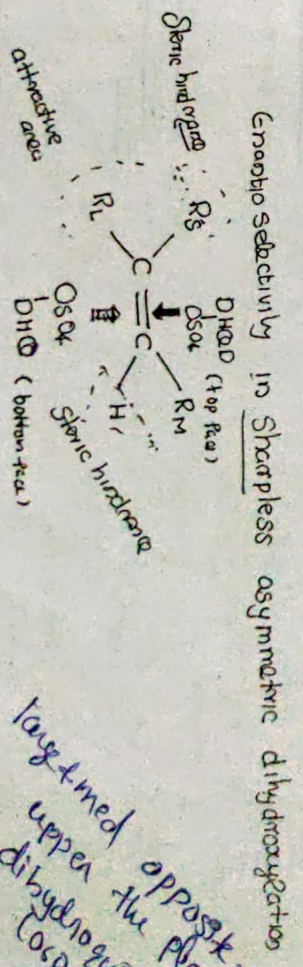 Enantioselectivity in Sharpless asymmetric dihydroxylation
DHQD (top face)
OsO4
Steric hindrance
RS
RM
C = C
RL
H
attractive
area
steric hindrance
OsO4
DHQ (bottom face)
opposite
upper the